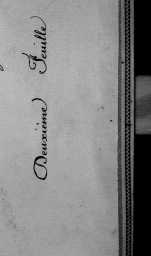 Deuxième Feuille